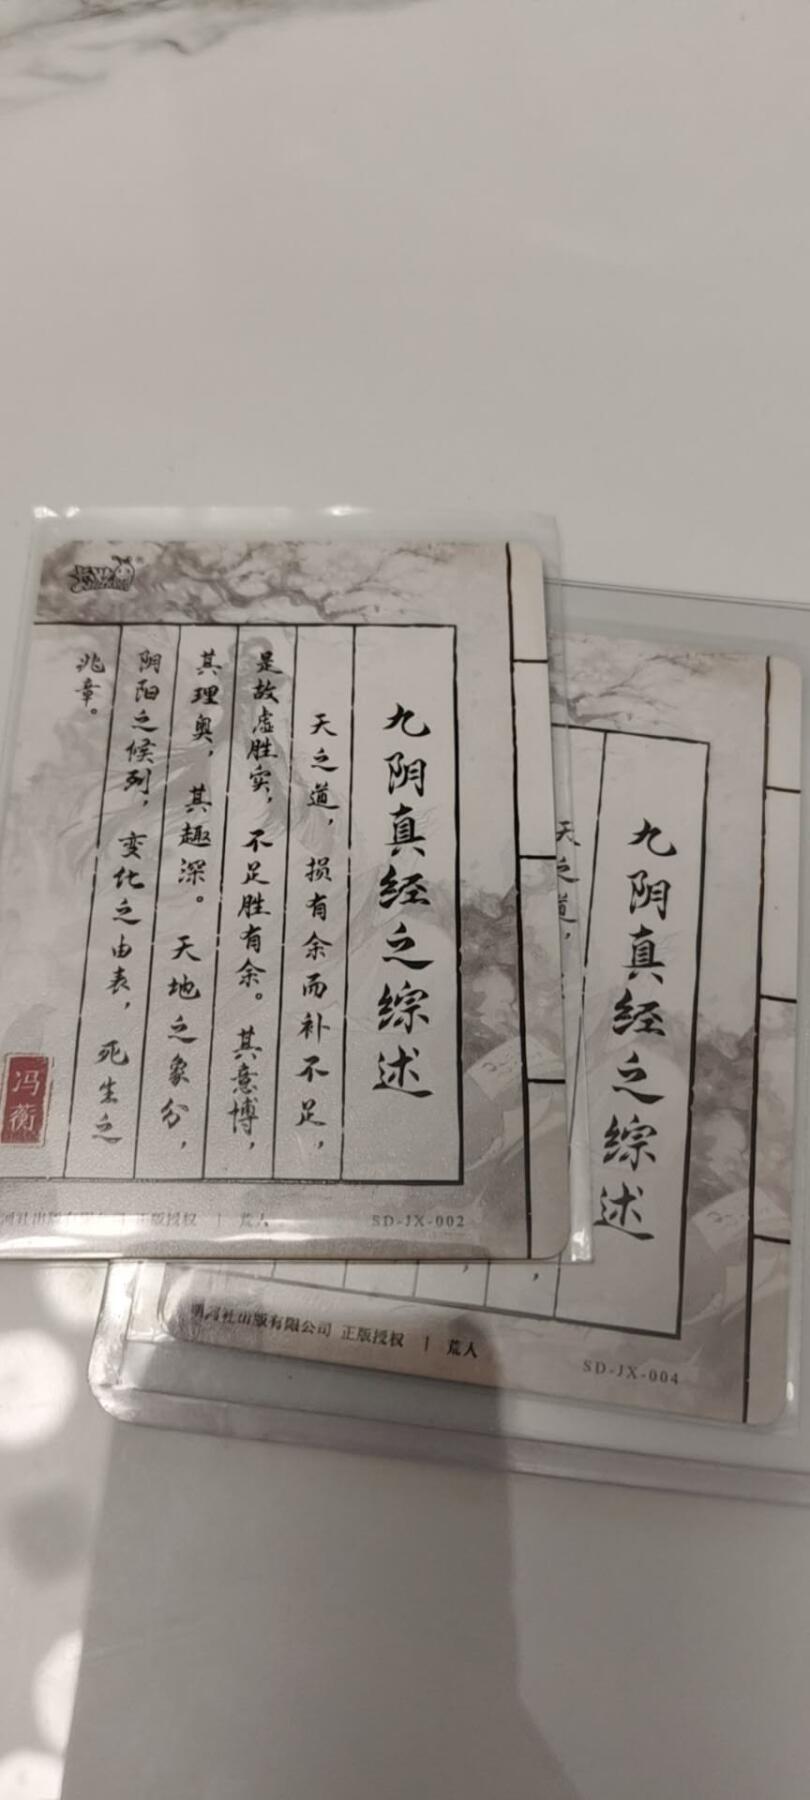 九阴真经之综述
天之道，损有余而补不足，
是故虚胜实，不足胜有余。其意博，
其理奥，其趣深。天地之象分，
阴阳之候列，变化之由表，死生之
兆章。
冯蘅
河社出版有限公司 正版授权 | 荒人
SD-JX-002
九阴真经之综述
天之道，
明河社出版有限公司 正版授权 | 荒人
SD-JX-004